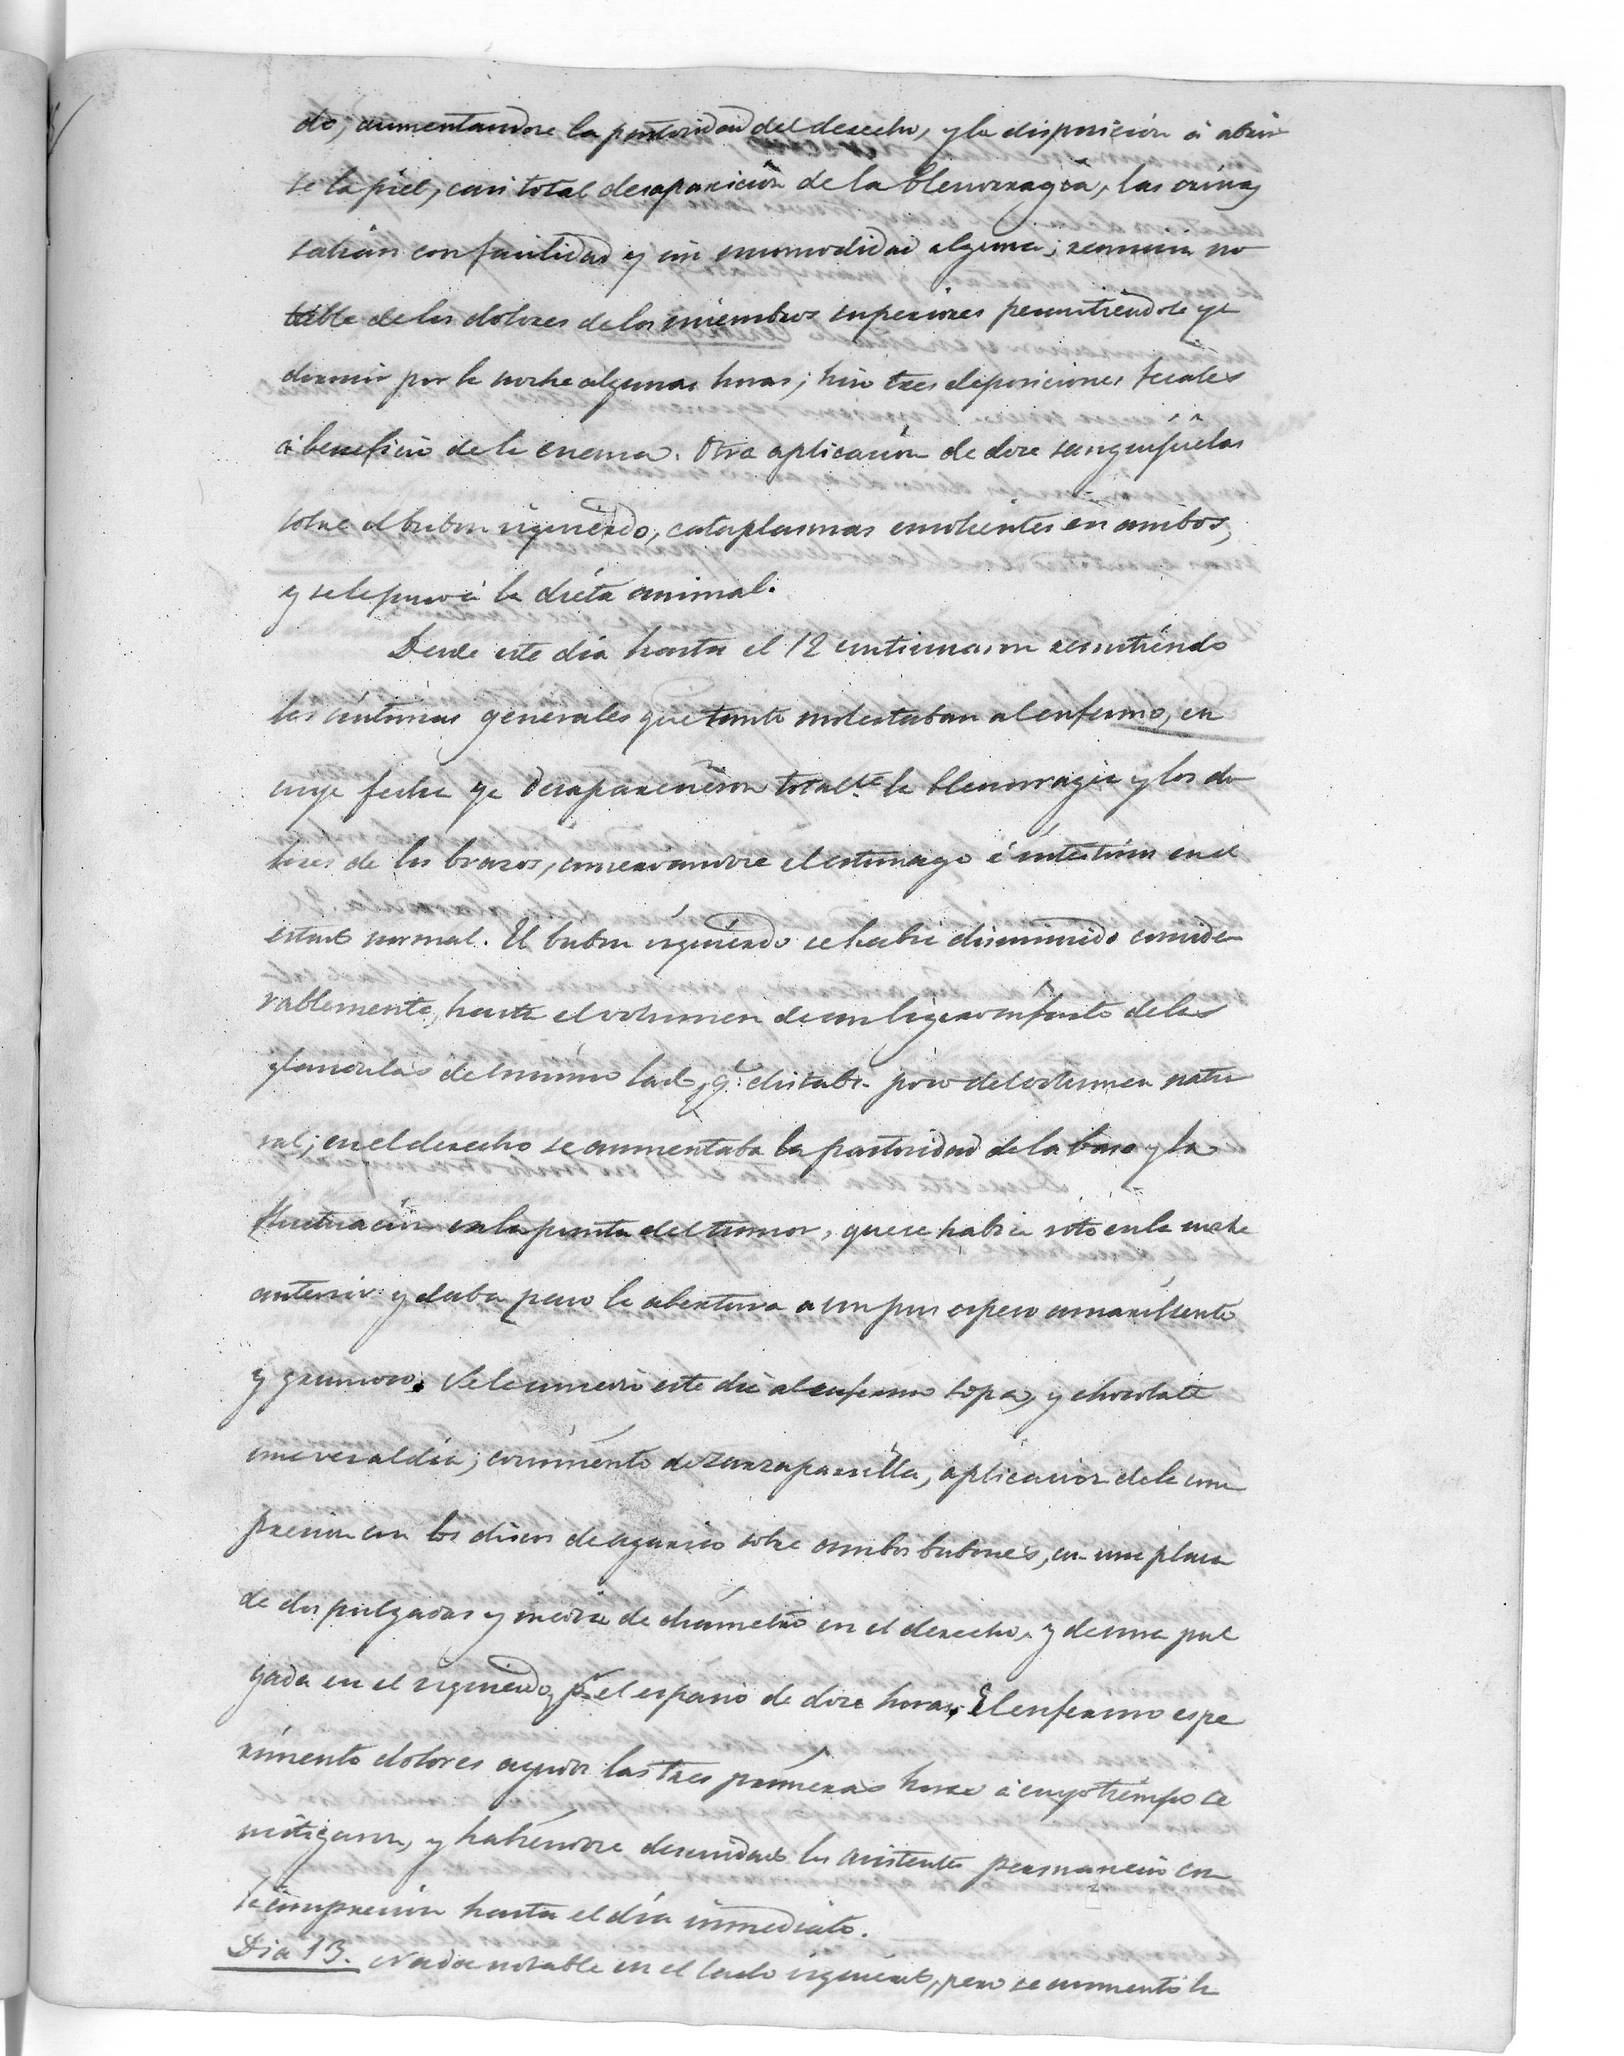 do, aumentandose la pastosidad del derecho, y la disposición á abrir
se la piel, casi total desaparición de la blenorragia, las orinas
salian con facilidad y sin incomodidad alguna; remisión no
table de los dolores de los miembros superiores permitiendole ya
dormir por la noche algunas horas; hizo tres deposiciones fecales
á beneficio de la enema. Otra aplicación de doce sanguijuelas
sobre el bubon izquierdo, cataplasmas emolientes en ambos,
y se le puso á la diéta animal.
Desde este día hasta el 12 continuaron remitiéndo
los síntomas generales que tanto molestaban al enfermo, en
cuya fecha ya desaparecieron totalte. la blenorragia y los do
lores de los brazos, conservandose el estomago é intestinos en el
estado normal. El bubon izquierdo se habia disminuido conside
rablemente, hasta el volumen de un ligero infarto de las
glandulas del mismo lado, q.e distaba poco del volumen natu
ral; en el derecho se aumentaba la pastosidad de la base y la
fluctuación en la punta del tumor, que se habia roto en la noche
anterior y daba paso la abertura a un pus espeso amarillento
y grumoso. Se le concedió este dia al enfermo sopa, y chocolate
una vez al día; cocimiento de zarzaparrilla, aplicacion de la com
presion con los discos de agarico sobre ambos bubones, con una placa
de dos pulgadas y media de diámetro en el derecho, y de una pul
gada en el izquierdo, pr. el espacio de doce horas. El enfermo espe
rimento dolores agudos las tres primeras horas á cuyo tiempo se
mitigaron, y habiéndose descuidado los asistentes permaneció con
la compresión hasta el día inmediato.
Dia 13. Nada notable en el lado izquierdo, pero se aumentó la